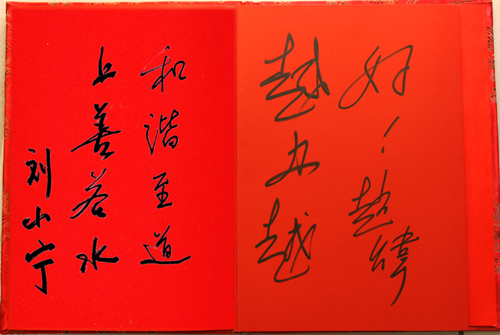 和谐至道
上善若水
刘小宁
越办越
好！
趙緯